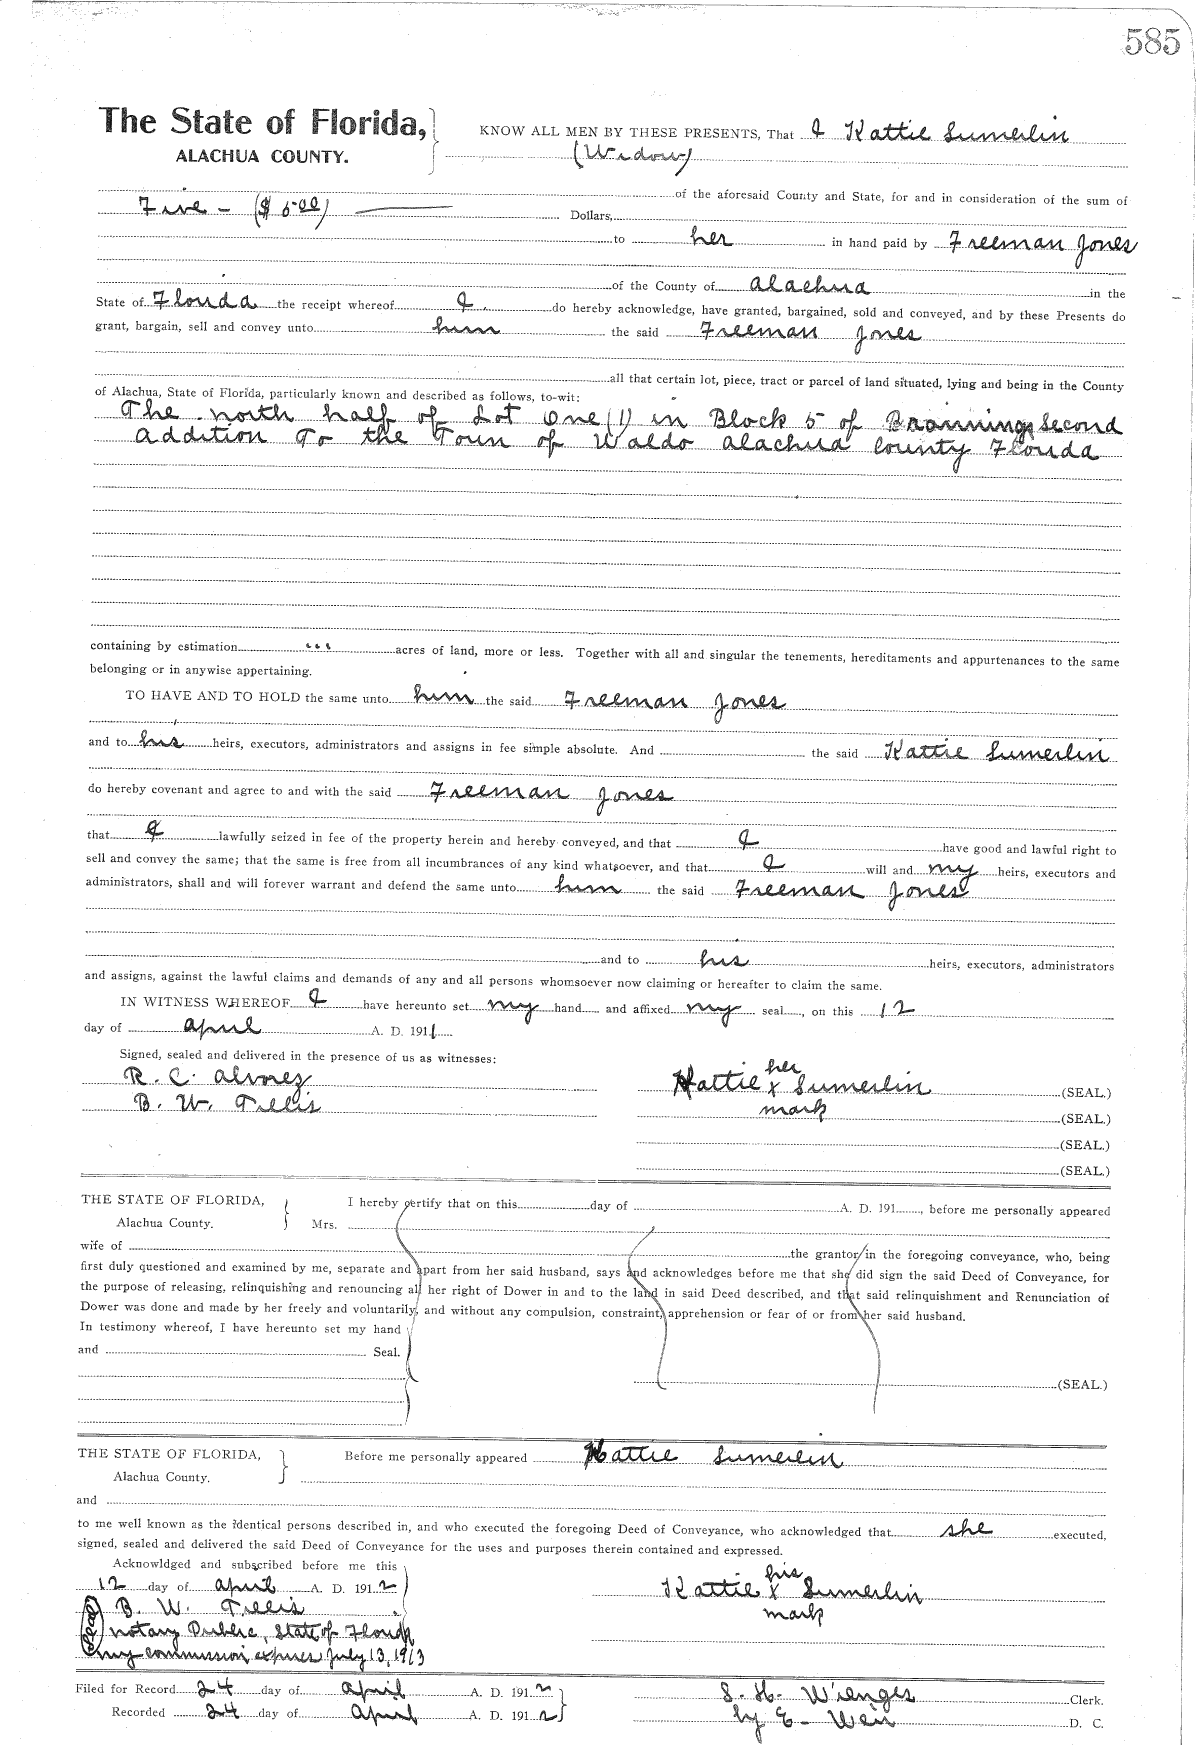 585
The State of Florida, KNOW ALL MEN BY THESE PRESENTS, That I Hattie Sumerlin
ALACHUA COUNTY. (Widow)
of the aforesaid County and State, for and in consideration of the sum of
Five - ($ 5 00) Dollars,
to her in hand paid by Freeman Jones
of the County of Alachua in the
State of Florida the receipt whereof I do hereby acknowledge, have granted, bargained, sold and conveyed, and by these Presents do
grant, bargain, sell and convey unto him the said Freeman Jones
all that certain lot, piece, tract or parcel of land situated, lying and being in the County
of Alachua, State of Florida, particularly known and described as follows, to-wit:
The north half of Lot One (1) in Block 5 of Brannings Second
Addition To the Town of Waldo Alachua County Florida
containing by estimation ... acres of land, more or less. Together with all and singular the tenements, hereditaments and appurtenances to the same
belonging or in anywise appertaining.
TO HAVE AND TO HOLD the same unto him the said Freeman Jones
and to his heirs, executors, administrators and assigns in fee simple absolute. And the said Hattie Sumerlin
do hereby covenant and agree to and with the said Freeman Jones
that I lawfully seized in fee of the property herein and hereby conveyed, and that I have good and lawful right to
sell and convey the same; that the same is free from all incumbrances of any kind whatsoever, and that I will and my heirs, executors and
administrators, shall and will forever warrant and defend the same unto him the said Freeman Jones
and to his heirs, executors, administrators
and assigns, against the lawful claims and demands of any and all persons whomsoever now claiming or hereafter to claim the same.
IN WITNESS WHEREOF I have hereunto set my hand and affixed my seal, on this 12
day of April A. D. 1911
Signed, sealed and delivered in the presence of us as witnesses:
her
R. C. Alvorez Hattie x Sumerlin (SEAL.)
B. W. Tillis mark (SEAL.)
(SEAL.)
(SEAL.)
THE STATE OF FLORIDA, I hereby certify that on this day of A. D. 191 , before me personally appeared
Alachua County. Mrs.
wife of the grantor in the foregoing conveyance, who, being
first duly questioned and examined by me, separate and apart from her said husband, says and acknowledges before me that she did sign the said Deed of Conveyance, for
the purpose of releasing, relinquishing and renouncing all her right of Dower in and to the land in said Deed described, and that said relinquishment and Renunciation of
Dower was done and made by her freely and voluntarily, and without any compulsion, constraint, apprehension or fear of or from her said husband.
In testimony whereof, I have hereunto set my hand
and Seal.
(SEAL.)
THE STATE OF FLORIDA, Before me personally appeared Hattie Sumerlin
Alachua County.
and
to me well known as the identical persons described in, and who executed the foregoing Deed of Conveyance, who acknowledged that she executed,
signed, sealed and delivered the said Deed of Conveyance for the uses and purposes therein contained and expressed.
Acknowldged and subscribed before me this
his
12 day of April A. D. 1912 Hattie x Sumerlin
B. W. Tillis mark
(Seal) Notary Public, State of Florida
My commission expires July 13, 1913
Filed for Record 24 day of April A. D. 1912 S. H. Wienges Clerk.
Recorded 24 day of April A. D. 1912 by E- Weir D. C.